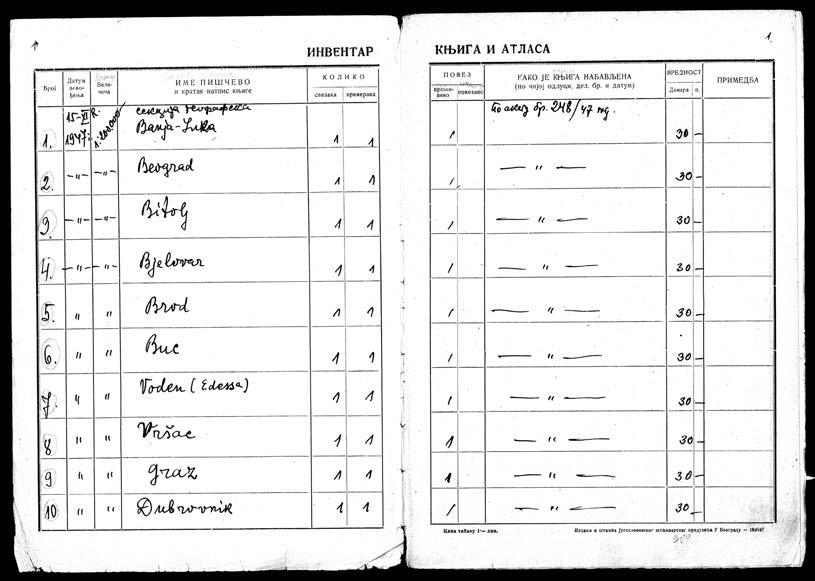 ИНВЕНТАР
КЊИГА И АТЛАСА
1.
Број
Датум
заво-
ђења
Вели-
чина
ИМЕ ПИШЧЕВО
и кратак натпис књиге
КОЛИКО
свезака
примерака
ПОВЕЗ
повезано
КАКО ЈЕ КЊИГА НАБАВЉЕНА
(по чијој одлуци, дел. бр. и датум)
ВРЕДНОСТ
Динара
п.
ПРИМЕДБА
1. 15-XI 1947 1:200.000 секција географска
Banja-Luka 1 1 1 бр. 248/47 30 —
2. —"— —"— Beograd 1 1 1 — " — 30 —
3. —"— —"— Bitolj 1 1 1 — " — 30 —
4. —"— —"— Bjelovar 1 1 1 — " — 30 —
5. " " Brod 1 1 1 — " — 30 —
6. " " Buc 1 1 1 — " — 30 —
7. " " Voden (Edessa) 1 1 1 — " — 30 —
8 " " Vršac 1 1 1 — " — 30 —
9 " " Graz 1 1 1 — " — 30 —
10 " " Dubrovnik 1 1 1 — " — 30 —
Цена табаку 1·— дин.
Издање и штампа Југословенског штампарског предузећа У Београду —